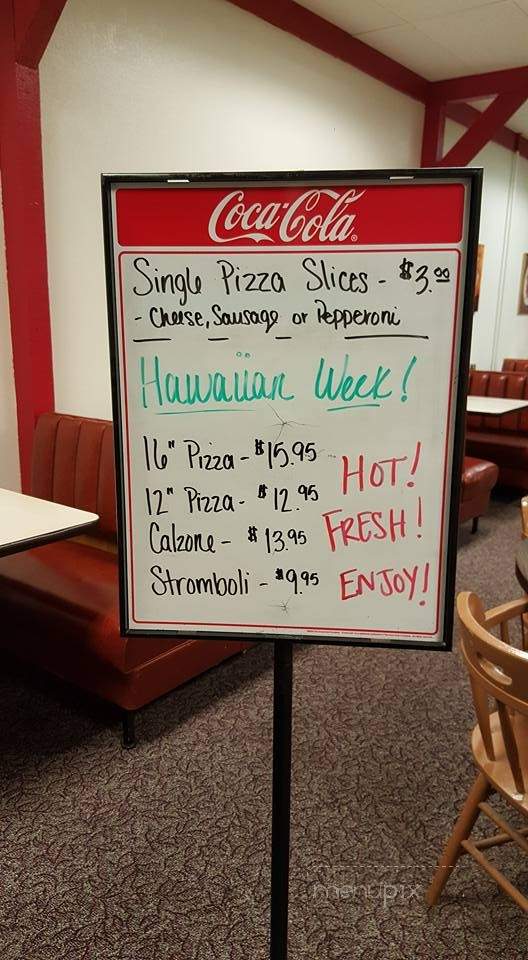 Coca-Cola
Single Pizza Slices - $3.00
- Cheese, Sausage or Pepperoni
Hawaiian Week!
16" Pizza - $15.95
12" Pizza - $12.95
Calzone - $13.95
Stromboli - $9.95
HOT!
FRESH!
ENJOY!
menupix